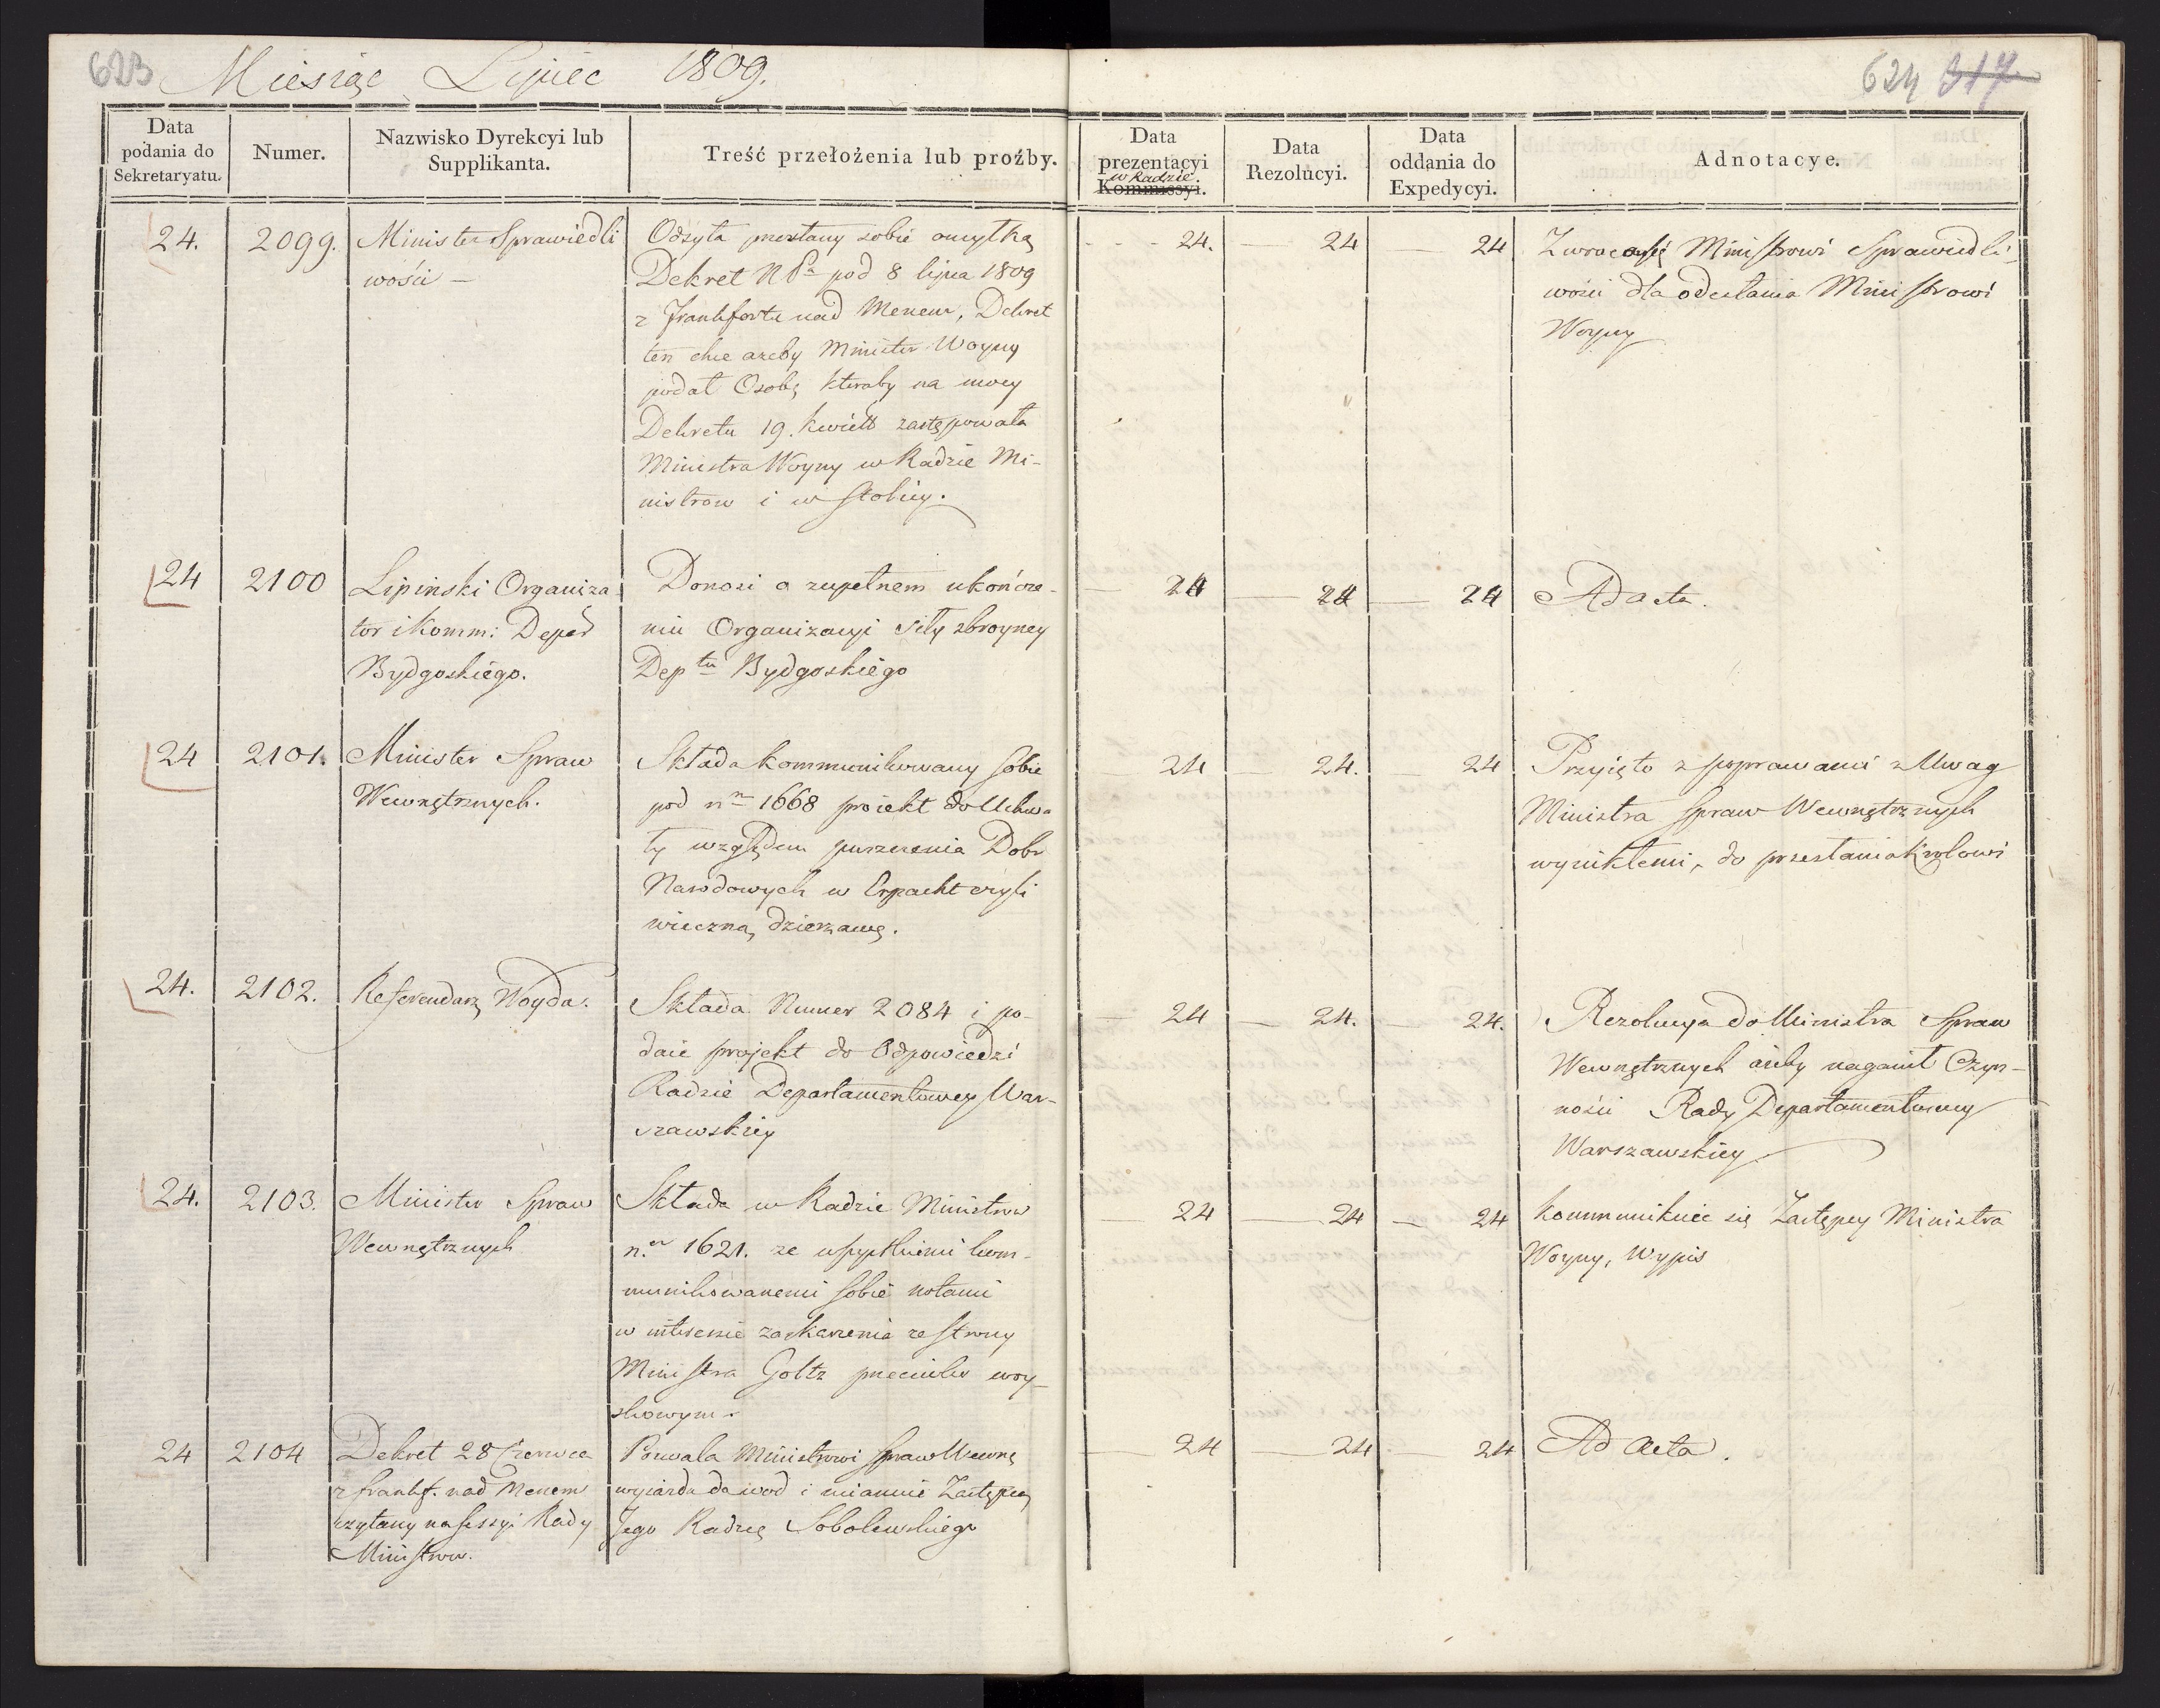 623 Miesiąc Lipiec 1809.
624 317
Data podania do Sekretaryatu.
Numer.
Nazwisko Dyrekcyi lub Supplikanta.
Treść przełożenia lub proźby.
Data prezentacyi w Radzie Kommissyi.
Data Rezolucyi.
Data oddania do Expedycyi.
Adnotacye.
24. 2099.
Minister Sprawiedli
wości —
Odsyła przesłany sobie omyłką
Dekret NPa pod 8 lipca 1809
z Frankfortu nad Menem, Dekret
ten chce ażeby Minister Woyny
podał Osobę ktoraby na mocy
Dekretu 19. kwiet zastępowała
Ministra Woyny w Radzie Mi-
nistrow i w stolicy.
24. 24 24
Zwraca się Ministrowi Sprawiedli-
wości dla odesłania Ministrowi
Woyny
24 2100
Lipinski Organiza
tor i Kommi: Depar
Bydgoskiego.
Donosi o zupełnem ukończe-
niu Organizacyi siły zbroyney
Deptu Bydgoskiego
24 24 24
Ad acta.
24 2101.
Minister Spraw
Wewnętrznych.
Składa kommunikowany sobie
pod nrm 1668 projekt do Uchwa-
ły względem puszczenia Dobr
Narodowych w Erpacht czyli
wieczną dzierzawę.
24 24. 24
Przyięto z poprawami z Uwag
Ministra Spraw Wewnętrznych
wynikłemi, do przesłania Krolowi
24. 2102.
Referendarz Woyda.
Składa Numer 2084 i po-
daie projekt do Odpowiedzi
Radzie Departamentowey War-
szawskiey
24 24. 24.
Rezolucya do Ministra Spraw
Wewnętrznych ażeby naganił Czyn-
ności Rady Departamentowey
Warszawskiey
24. 2103.
Minister Spraw
Wewnętrznych
Składa w Radzie Ministrow
n.er 1621. ze wszystkiemi kom-
munikowanemi sobie notami
w interesie zaskarzenia ze strony
Ministra Goltz przeciwko woy-
skowym.
24 24 24
Kommunikuie się Zastępcy Ministra
Woyny, Wypis
24 2104
Dekret 28 Czerwca
z frankf. nad Menem
czytany na sessyi Rady
Ministrow.
Pozwala Ministrowi Spraw Wewnę
wyiazdu do wod i mianuie Zastępcą
Jego Radzcę Sobolewskiego
24 24 24
Ad Acta.